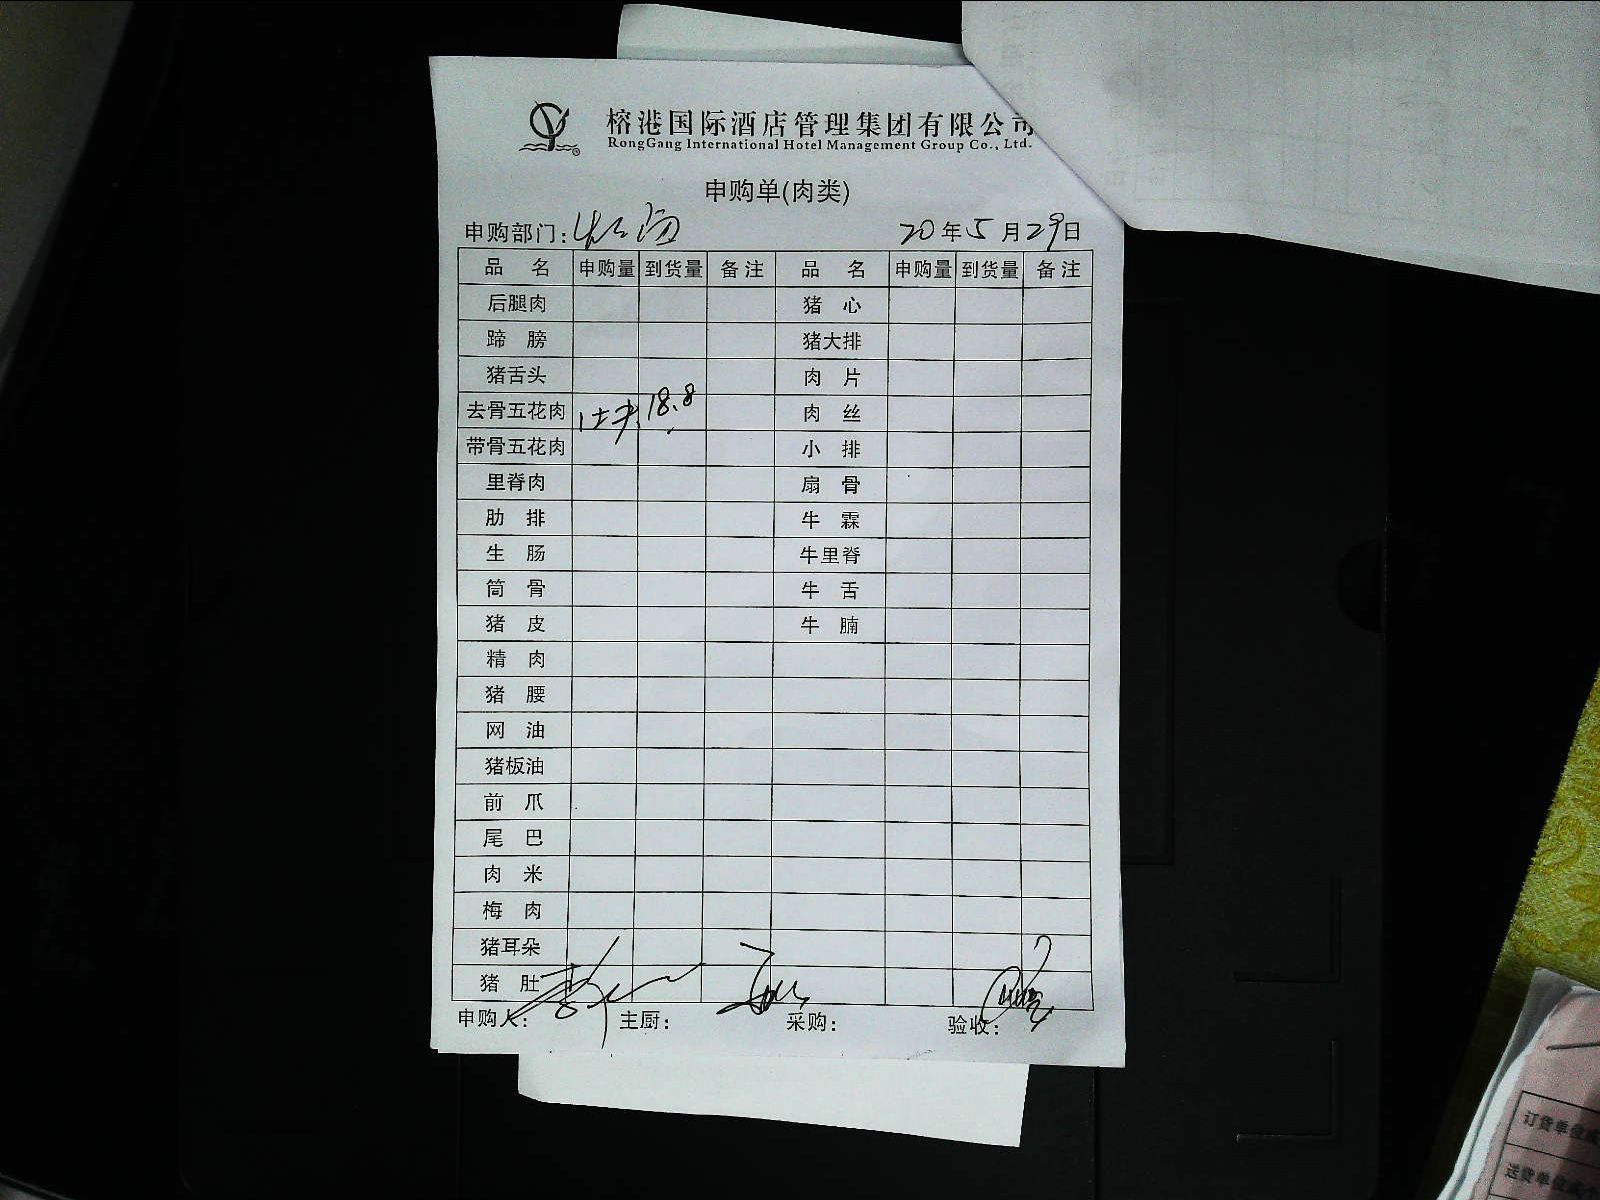 榕港国际酒店管理集团有限公司
RongGang International Hotel Management Group Co., Ltd.
申购单(肉类)
申购部门: 20年5月29日
品名 申购量 到货量 备注 品名 申购量 到货量 备注
后腿肉 猪心
蹄膀 猪大排
猪舌头 肉片
去骨五花肉 18.8 肉丝
带骨五花肉 小排
里脊肉 扇骨
肋排 牛霖
生肠 牛里脊
筒骨 牛舌
猪皮 牛腩
精肉
猪腰
网油
猪板油
前爪
尾巴
肉米
梅肉
猪耳朵
猪肚
申购人: 主厨: 采购: 验收:
订货单位
送货单位